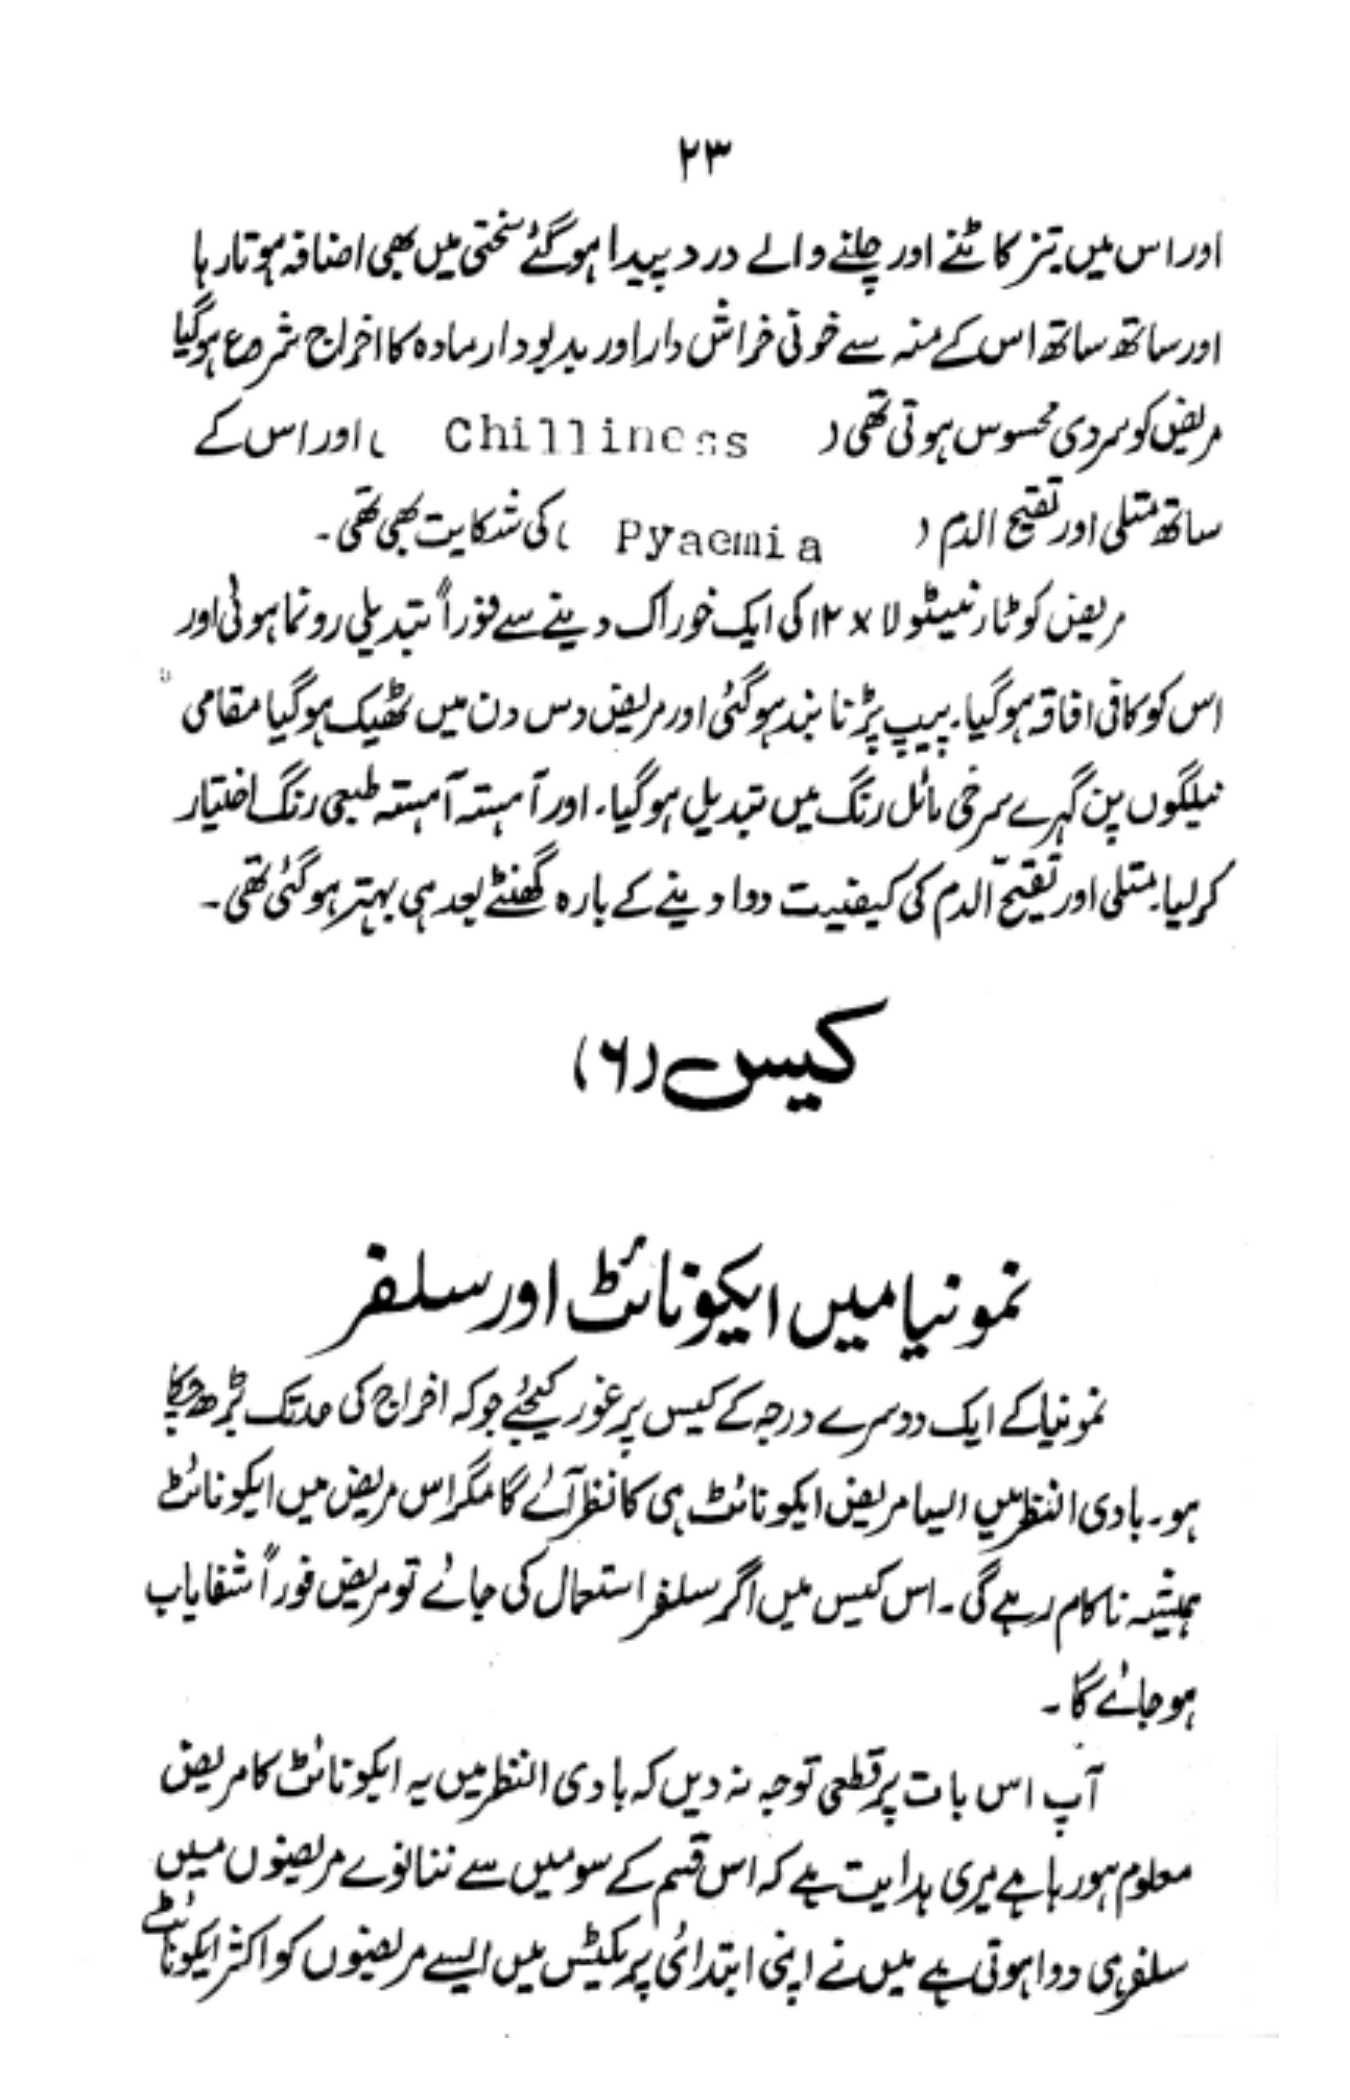 ۲۳
اور اس میں تیز کاٹنے اور چلنے والے درد پیدا ہوگئے سختی میں بھی اضافہ ہوتا رہا
اور ساتھ ساتھ اس کے منہ سے خونی خراش دار اور بدبودار مادہ کا اخراج شروع ہوگیا
مریض کو سردی محسوس ہوتی تھی (Chilliness) اور اس کے
ساتھ متلی اور تقیح الدم (Pyaemia) کی شکایت بھی تھی۔
مریض کو ٹارنیٹولا ۱۲x کی ایک خوراک دینے سے فوراً تبدیلی رونما ہوئی اور
اس کو کافی افاقہ ہوگیا۔ پیپ پڑنا بند ہوگئی اور مریض دس دن میں ٹھیک ہوگیا مقامی
نیلگوں پن گہرے سرخی مائل رنگ میں تبدیل ہوگیا۔ اور آہستہ آہستہ طبعی رنگ اختیار
کرلیا۔ متلی اور تقیحّ الدم کی کیفیت دوا دینے کے بارہ گھنٹے بعد ہی بہتر ہوگئی تھی۔
کیس (۶)
نمونیا میں ایکونائٹ اور سلفر
نمونیا کے ایک دوسرے درجہ کے کیس پر غور کیجئے جو کہ اخراج کی حد تک بڑھ چکا
ہو۔ بادی النظر میں ایسا مریض ایکونائٹ ہی کا نظر آئے گا مگر اس مریض میں ایکونائٹ
ہمیشہ ناکام رہے گی۔ اس کیس میں اگر سلفر استعمال کی جائے تو مریض فوراً شفایاب
ہوجائے گا۔
آپ اس بات پر قطعی توجہ نہ دیں کہ بادی النظر میں یہ ایکونائٹ کا مریض
معلوم ہو رہا ہے میری ہدایت ہے کہ اس قسم کے سو میں سے ننانوے مریضوں میں
سلفر ہی دوا ہوتی ہے میں نے اپنی ابتدائی پریکٹیس میں ایسے مریضوں کو اکثر ایکونائٹ